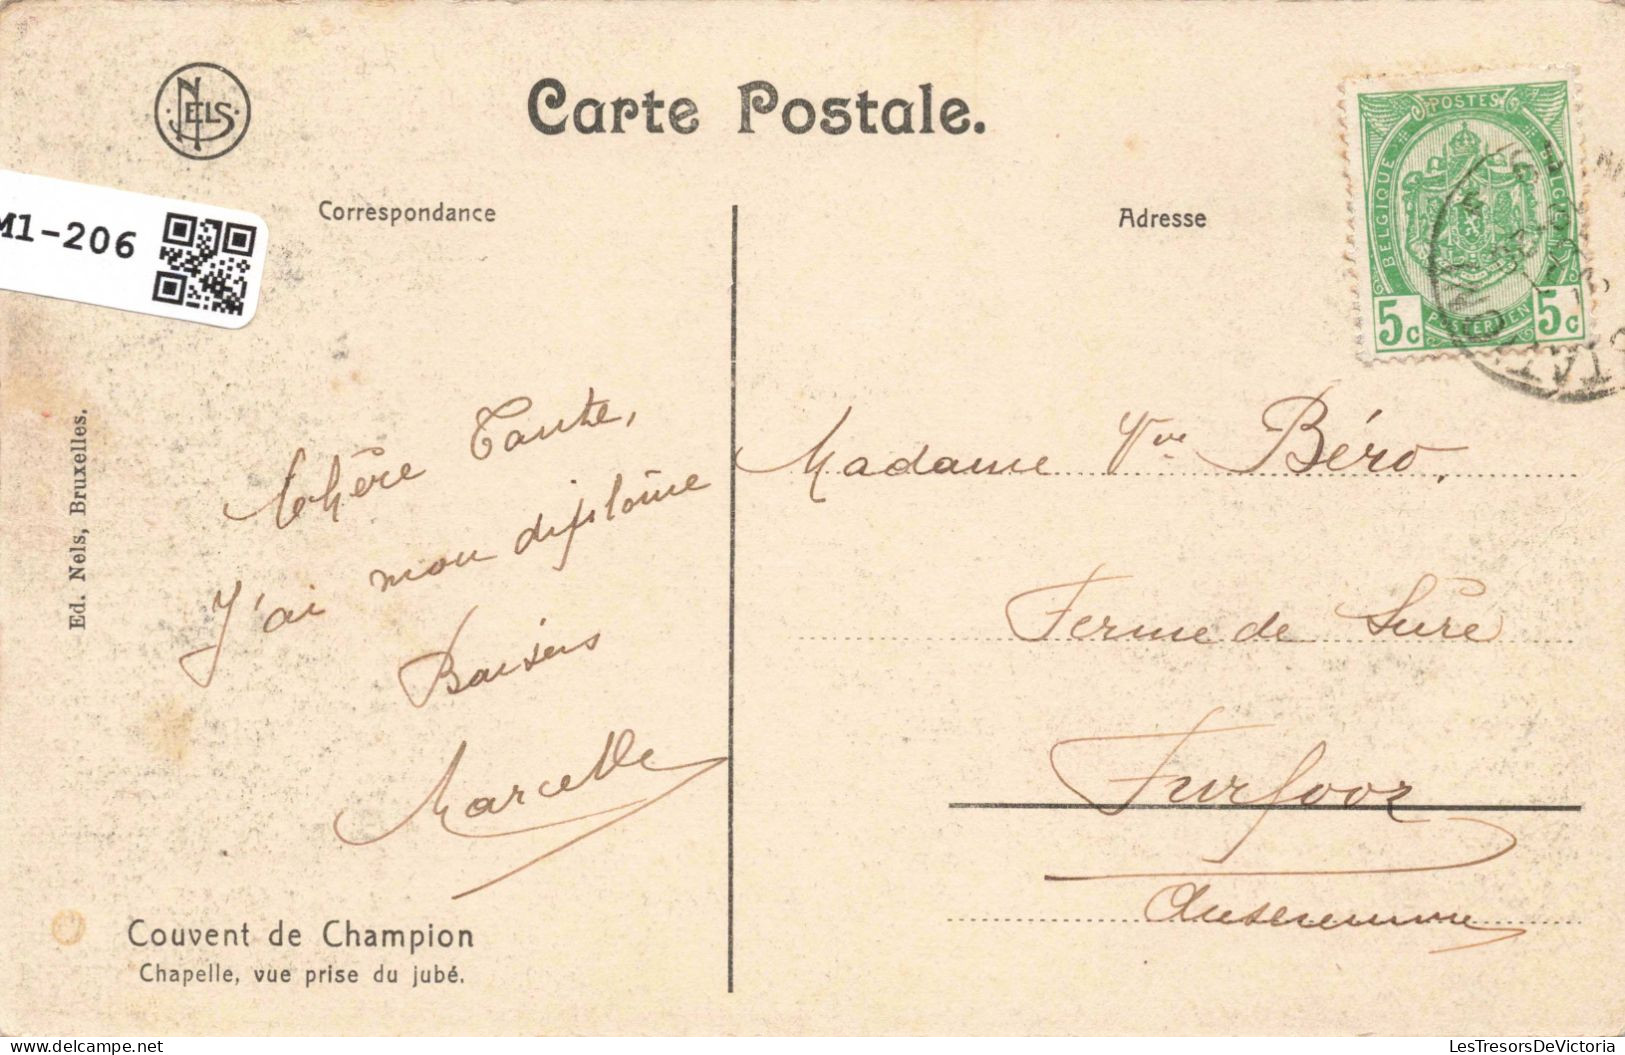 NELS
Carte Postale.
M1-206
Correspondance
Adresse
POSTES
BELGIQUE
BELGIË
POSTERIJEN
5c 5c
Ed. Nels, Bruxelles.
Chère Tante,
J'ai mon diplôme
Baisers
Marcelle
Madame Vve Béro.
Ferme de Sûre
Furfooz
Couvent de Champion
Chapelle, vue prise du jubé.
LesTresorsDeVictoria